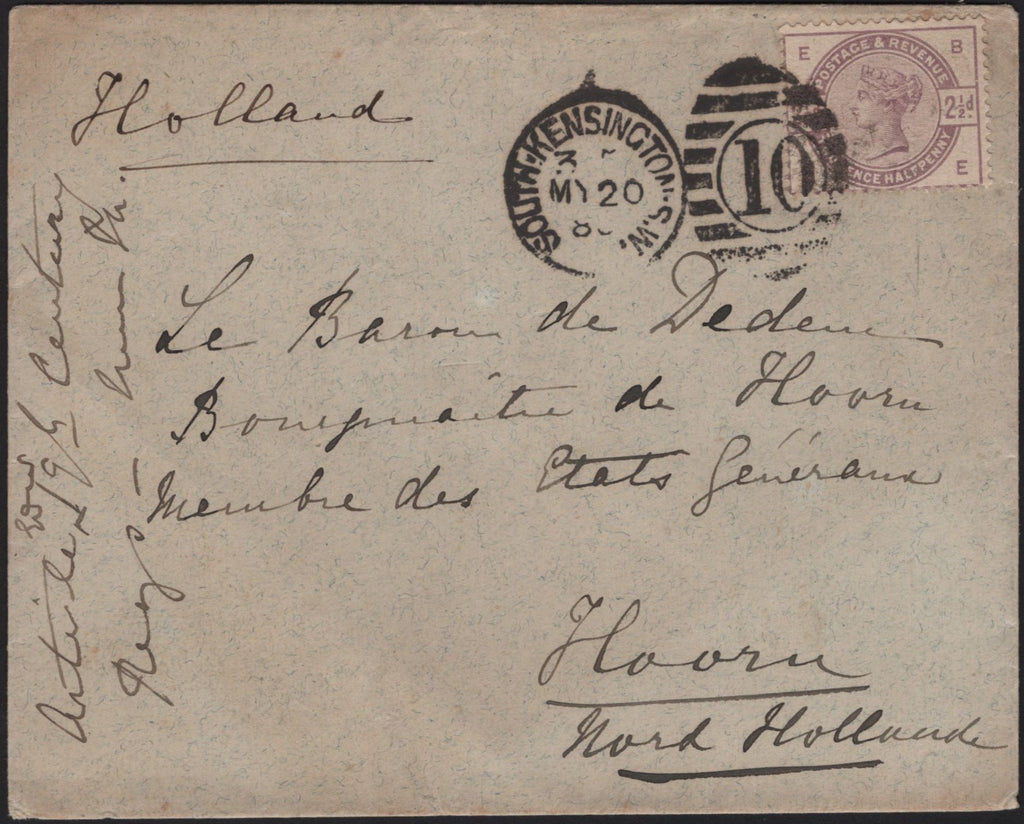 Holland
SOUTH-KENSINGTON·S.W.
MY 20
8
10
E B
POSTAGE & REVENUE
2½d
ENCE HALFPENNY
E
Le Baron de Dedem
Bourgmaître de Hoorn
Membre des Etats Généraux
Hoorn
Nord Hollande
Article 19th Century